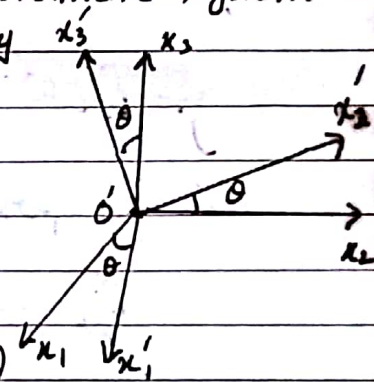 y
x₃' x₃
θ
x₂'
O' θ
x₂
θ
) x₁ x₁'